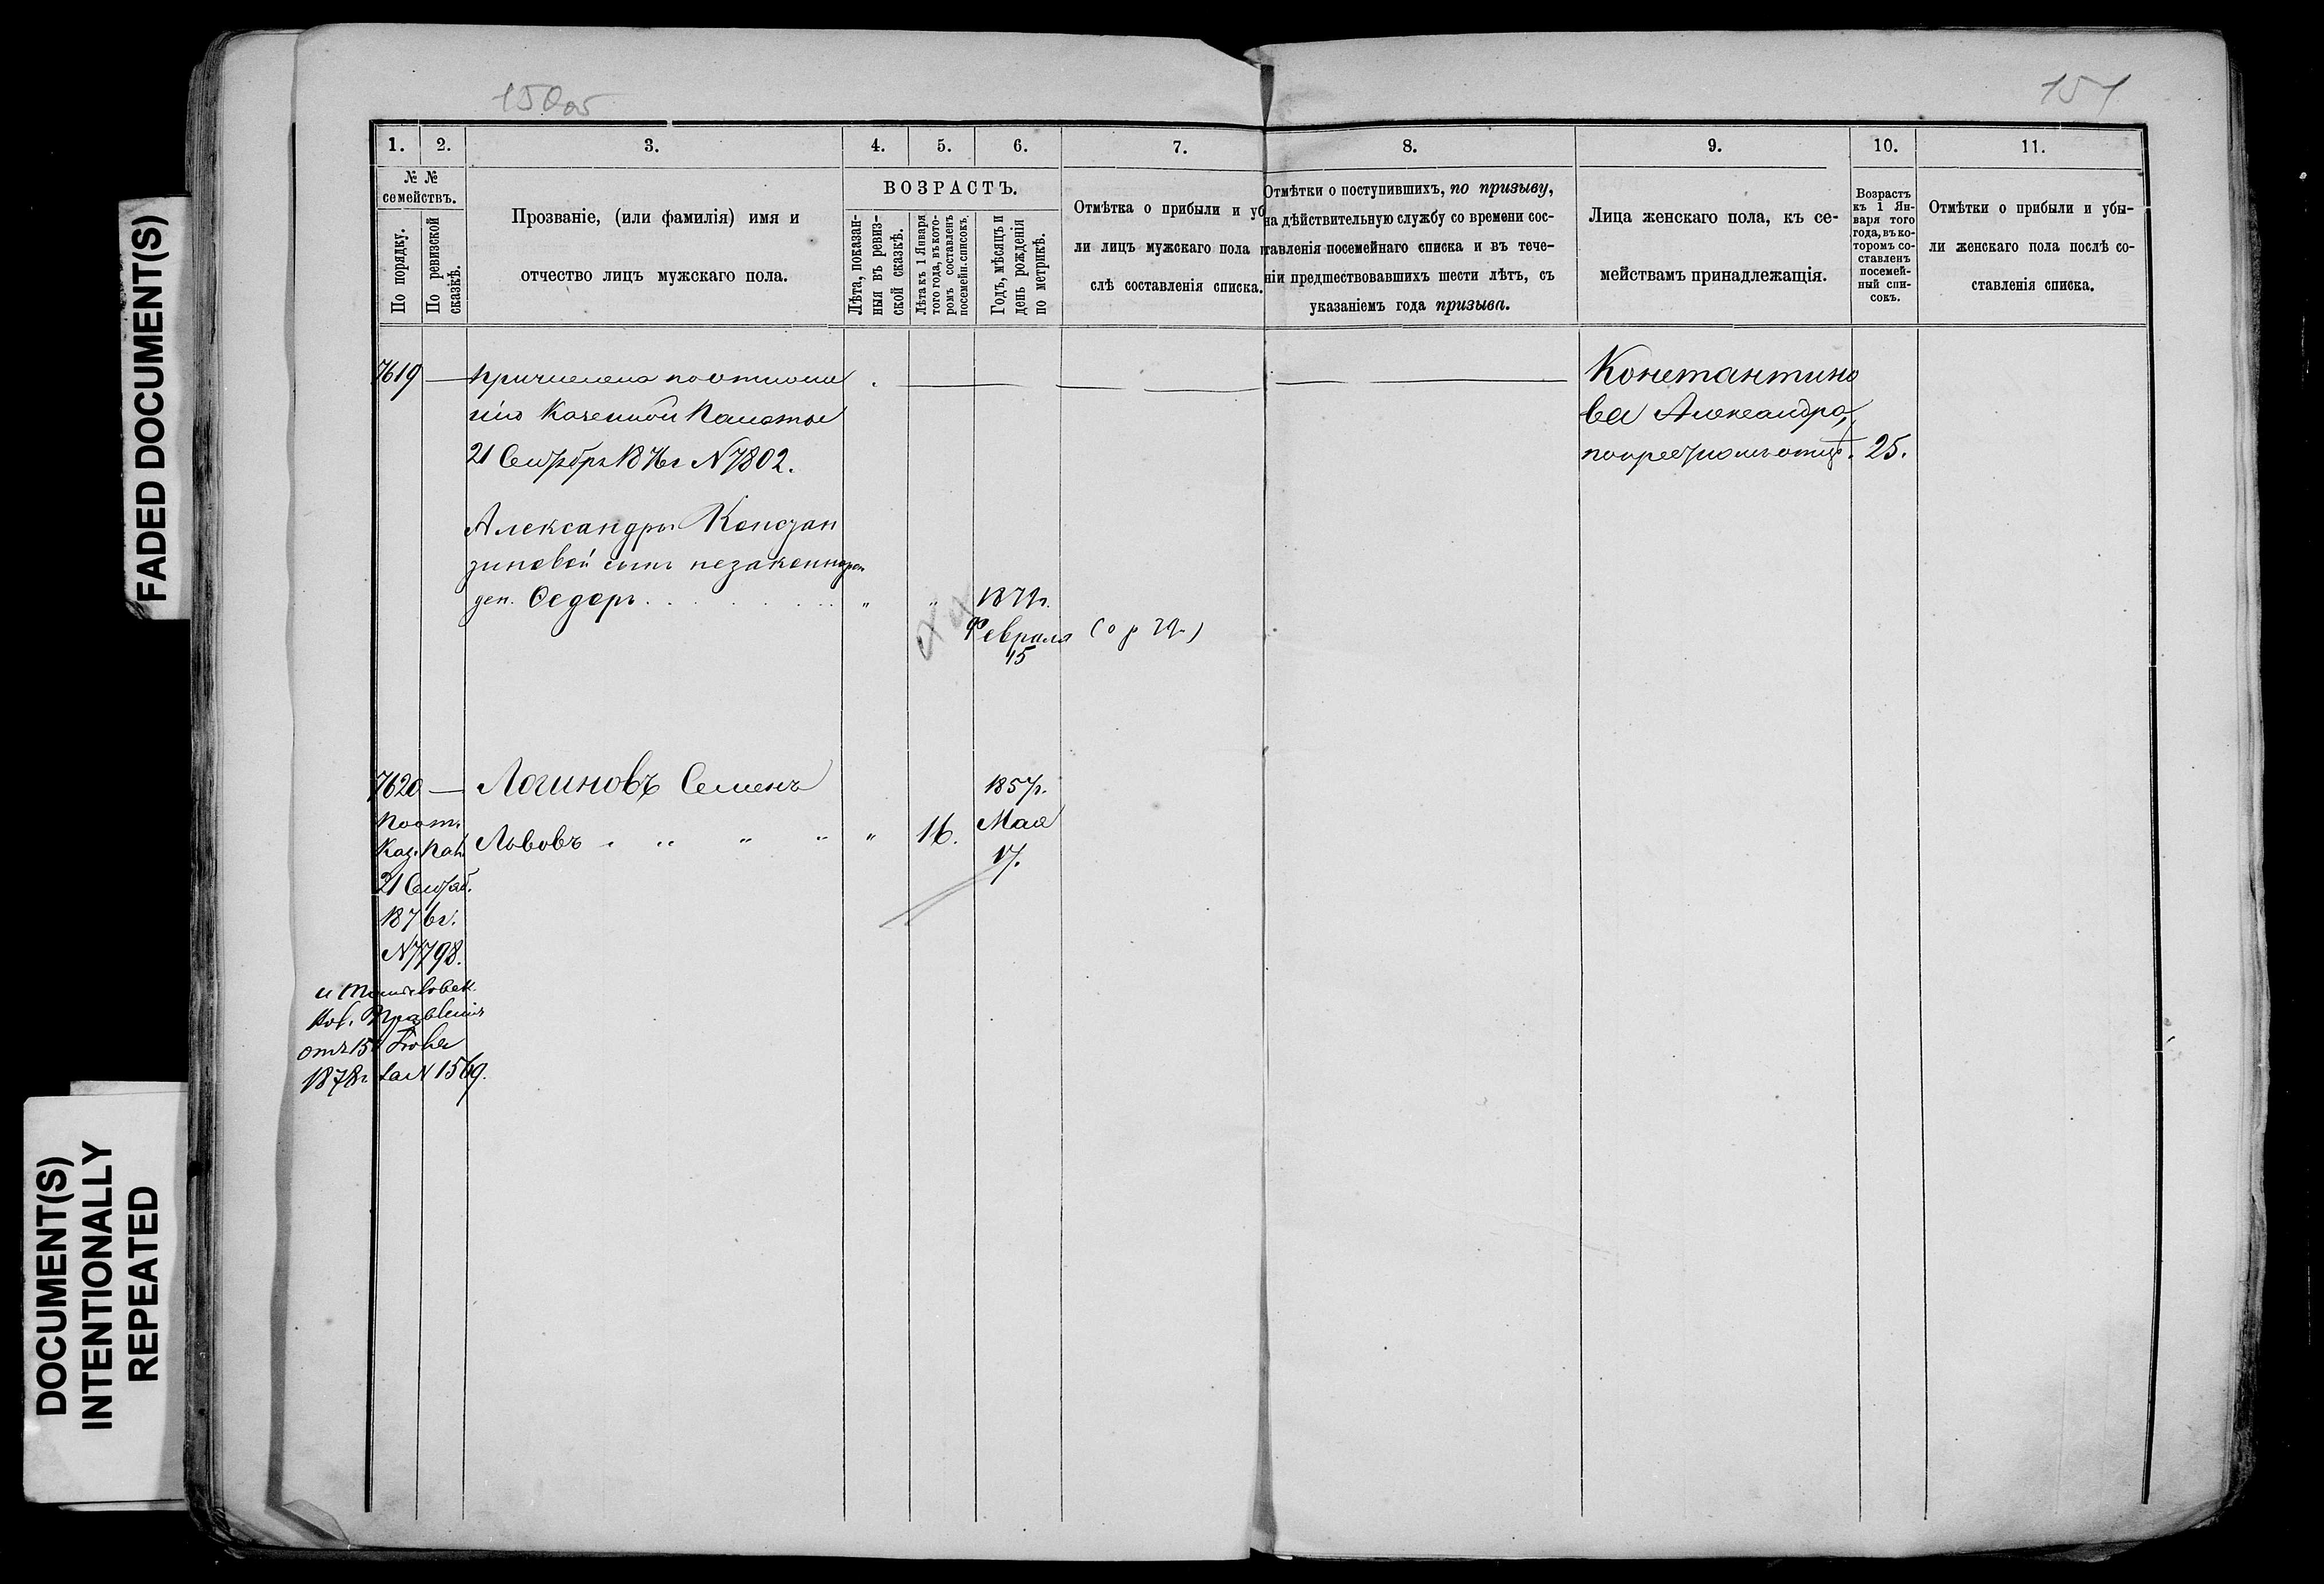 150 об
151
FADED DOCUMENT(S)
DOCUMENT(S)
INTENTIONALLY
REPEATED
1. 2. 3. 4. 5. 6. 7. 8. 9. 10. 11.
№ №
семействъ.
По порядку.
По ревизской
сказкѣ.
Прозваніе, (или фамилія) имя и
отчество лицъ мужскаго пола.
ВОЗРАСТЪ.
Лѣта, показан-
ныя въ ревиз-
ской сказкѣ.
Лѣта къ 1 Января
того года, въ кото-
ромъ составленъ
посемейн. списокъ.
Годъ, мѣсяцъ и
день рожденія
по метрикѣ.
Отмѣтка о прибыли и уб
ли лицъ мужскаго пола п
слѣ составленія списка.
Отмѣтки о поступившихъ, по призыву,
на дѣйствительную службу со времени сос-
тавленія посемейнаго списка и въ тече-
ніи предшествовавшихъ шести лѣтъ, съ
указаніемъ года призыва.
Лица женскаго пола, къ се-
мействамъ принадлежащія.
Возрастъ
къ 1 Ян-
варя того
года, въ ко-
торомъ со-
ставленъ
посемей-
ный спи-
сокъ.
Отмѣтки о прибыли и убы-
ли женскаго пола послѣ со-
ставленія списка.
7619 — Причислена по отноше
нію Казенной Палаты
21 Сентября 1876 г N 7802.
Константино
ва Александра,
по крестному отцу. 25.
Александры Констан
тиновой сынъ незаконнорож
ден. Ѳедоръ . . . " " 1879г.
Февраля
15
7620 — Логиновъ Семенъ 1857г.
Львовъ . " " " " 16. Мая
17.
По от.
Каз. Пал.
21 Сентяб.
1876 г.
N 7798.
Правленія
отъ 15
1878 г за N 1569.